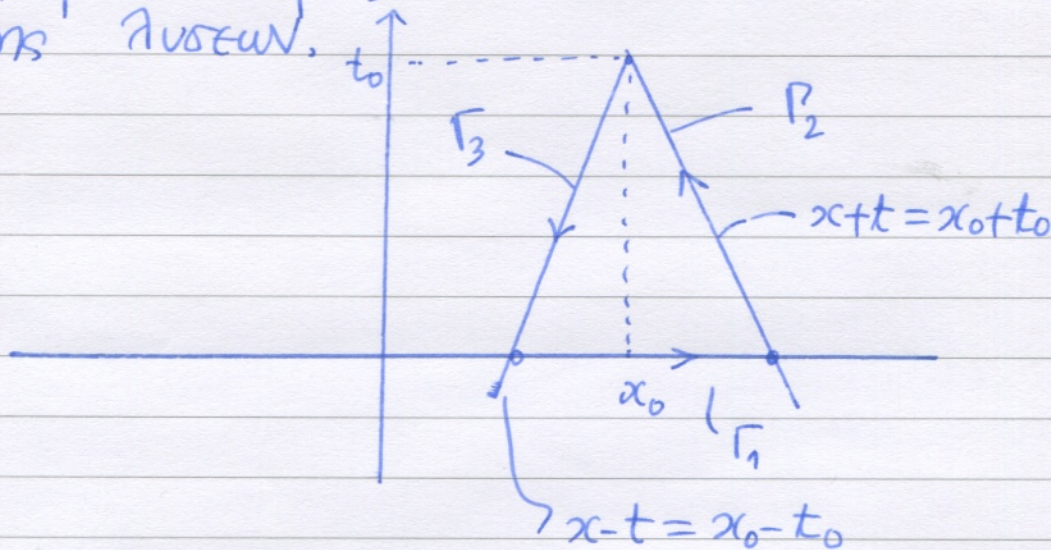 λυσεων.
t₀
Γ₃
Γ₂
x+t = x₀+t₀
x₀
Γ₁
x-t = x₀-t₀